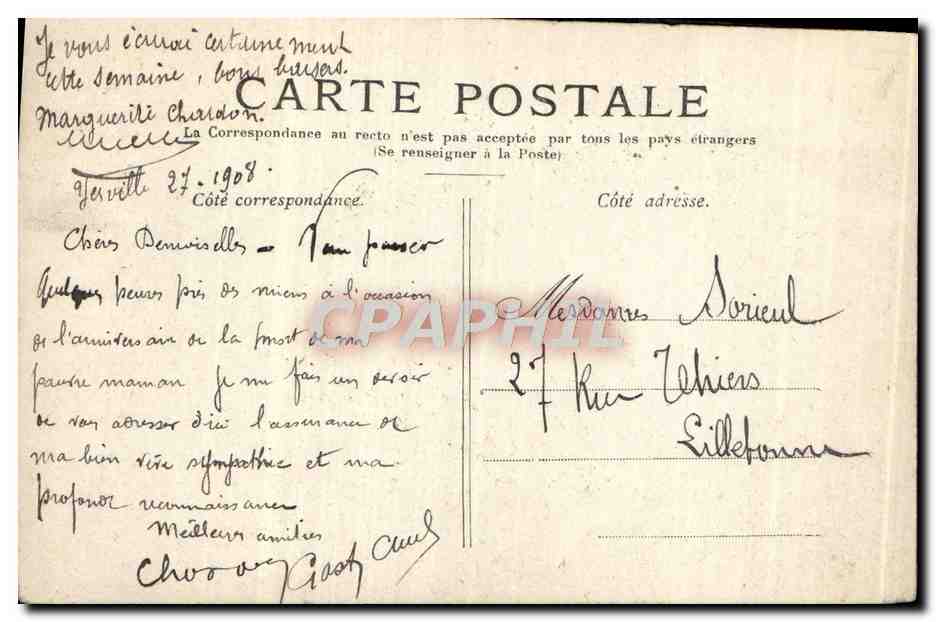 Je vous écrirai certainement
cette semaine, bons baisers.
Marguerite Chardon.
CARTE POSTALE
La Correspondance au recto n'est pas acceptée par tous les pays étrangers
(Se renseigner à la Poste)
Yerville 27. 1908.
Côté correspondance.
Côté adresse.
Chères Demoiselles - passer
quelques heures près des miens à l'occasion
de l'anniversaire de la mort de ma
pauvre maman je me fais un devoir
de vous adresser d'ici l'assurance de
ma bien vive sympathie et ma
profonde reconnaissance
Meilleures amitiés
Mesdames Sorieul
27 Rue Thiers
Lillebonne
CPAPHIL